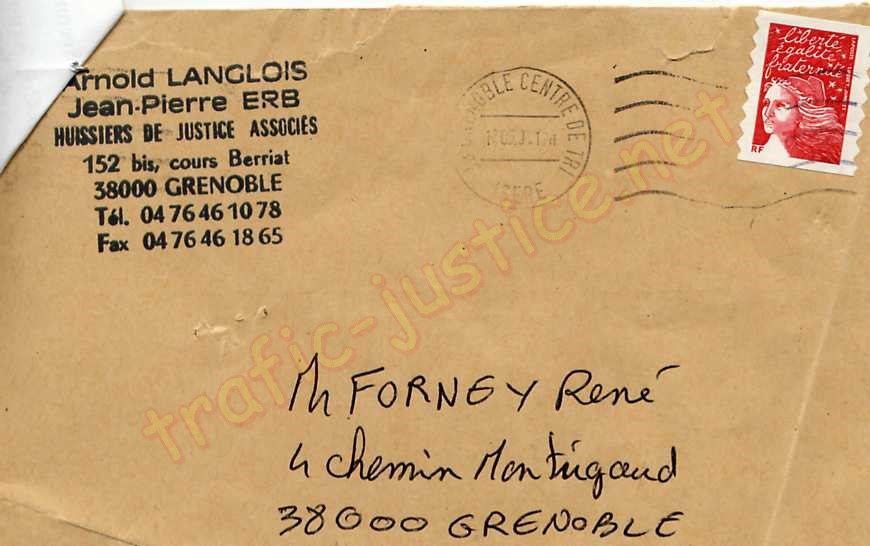 Arnold LANGLOIS
Jean-Pierre ERB
HUISSIERS DE JUSTICE ASSOCIÉS
152 bis, cours Berriat
38000 GRENOBLE
Tél. 04 76 46 10 78
Fax 04 76 46 18 65
GRENOBLE CENTRE DE TRI
ISERE
liberté
égalité
fraternité
RF
trafic-justice.net
M FORNEY René
4 chemin Montrigaud
38000 GRENOBLE